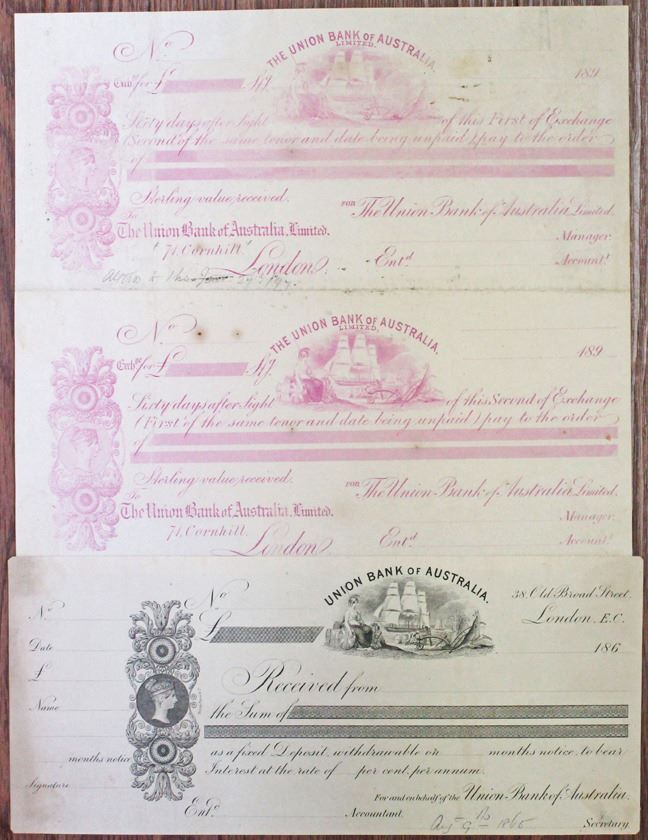 THE UNION BANK OF AUSTRALIA,
LIMITED.
No
Exch. for £ 189
Sixty days after Sight of this First of Exchange
(Second of the same tenor and date being unpaid) pay to the order
of
Sterling value received. FOR The Union Bank of Australia Limited.
To
The Union Bank of Australia, Limited. Manager.
71, Cornhill,
London. Entd Accountt
THE UNION BANK OF AUSTRALIA,
LIMITED.
No
Exche for £ 189
Sixty days after Sight of this Second of Exchange
(First of the same tenor and date being unpaid) pay to the order
of
Sterling value received. FOR The Union Bank of Australia Limited.
To
The Union Bank of Australia, Limited. Manager.
71, Cornhill,
London Entd Accountt
UNION BANK OF AUSTRALIA.
No No 38, Old Broad Street,
£ London, E.C.
Date 186
£ Received from
Name the Sum of
months notice as a fixed Deposit, withdrawable on months notice, to bear
Interest at the rate of per cent. per annum.
Signature For and on behalf of the Union Bank of Australia.
Entd Accountant. Augt 9th 1865 Secretary